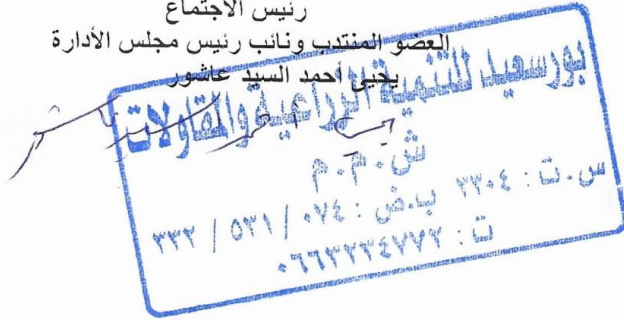 رئيس الاجتماع
العضو المنتدب ونائب رئيس مجلس الأدارة
يحيى أحمد السيد عاشور
بورسعيد للتنمية الزراعية والمقاولات
ش.م.م
س.ت : ٢٣٠٤ ب.ض : ٠٧٤ / ٥٣١ / ٣٣٢
ت : ٠٦٦٣٢٣٤٧٧٢